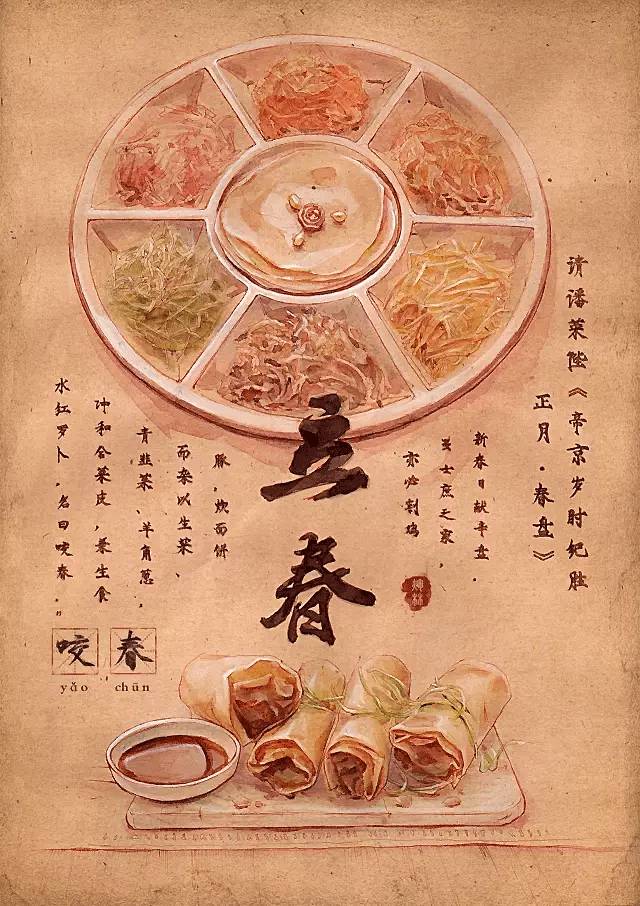 请潘莱陛《帝京岁时纪胜
正月·春盘》
新春日献辛盘。
虽士庶之家，
亦必割鸡
豚，炊面饼
而杂以生菜、
青韭菜、羊角葱，
冲和合菜皮，兼生食
水红罗卜，名曰咬春。”
立春
咬春
yǎo chūn